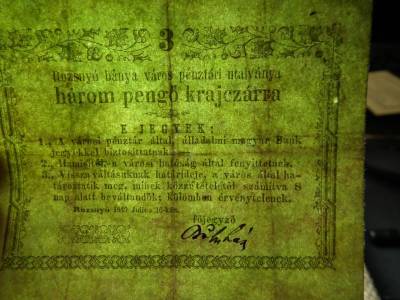 3
Rozsnyó bánya város pénztári utalványa
három pengő krajczárra
E JEGYEK:
1., A városi pénztár által, álladalmi magyar Bank
jegyekkel biztosíttatnak.
2., Hamisítók a városi hatóság által fenyittetnek.
3., Visszaváltásuknak határideje, a város által ha-
tároztatik meg, minek közzétételétől számítva 8
nap alatt beváltandók; különben érvénytelenek.
Rozsnyó 1849 Julius 16-kán.
főjegyző